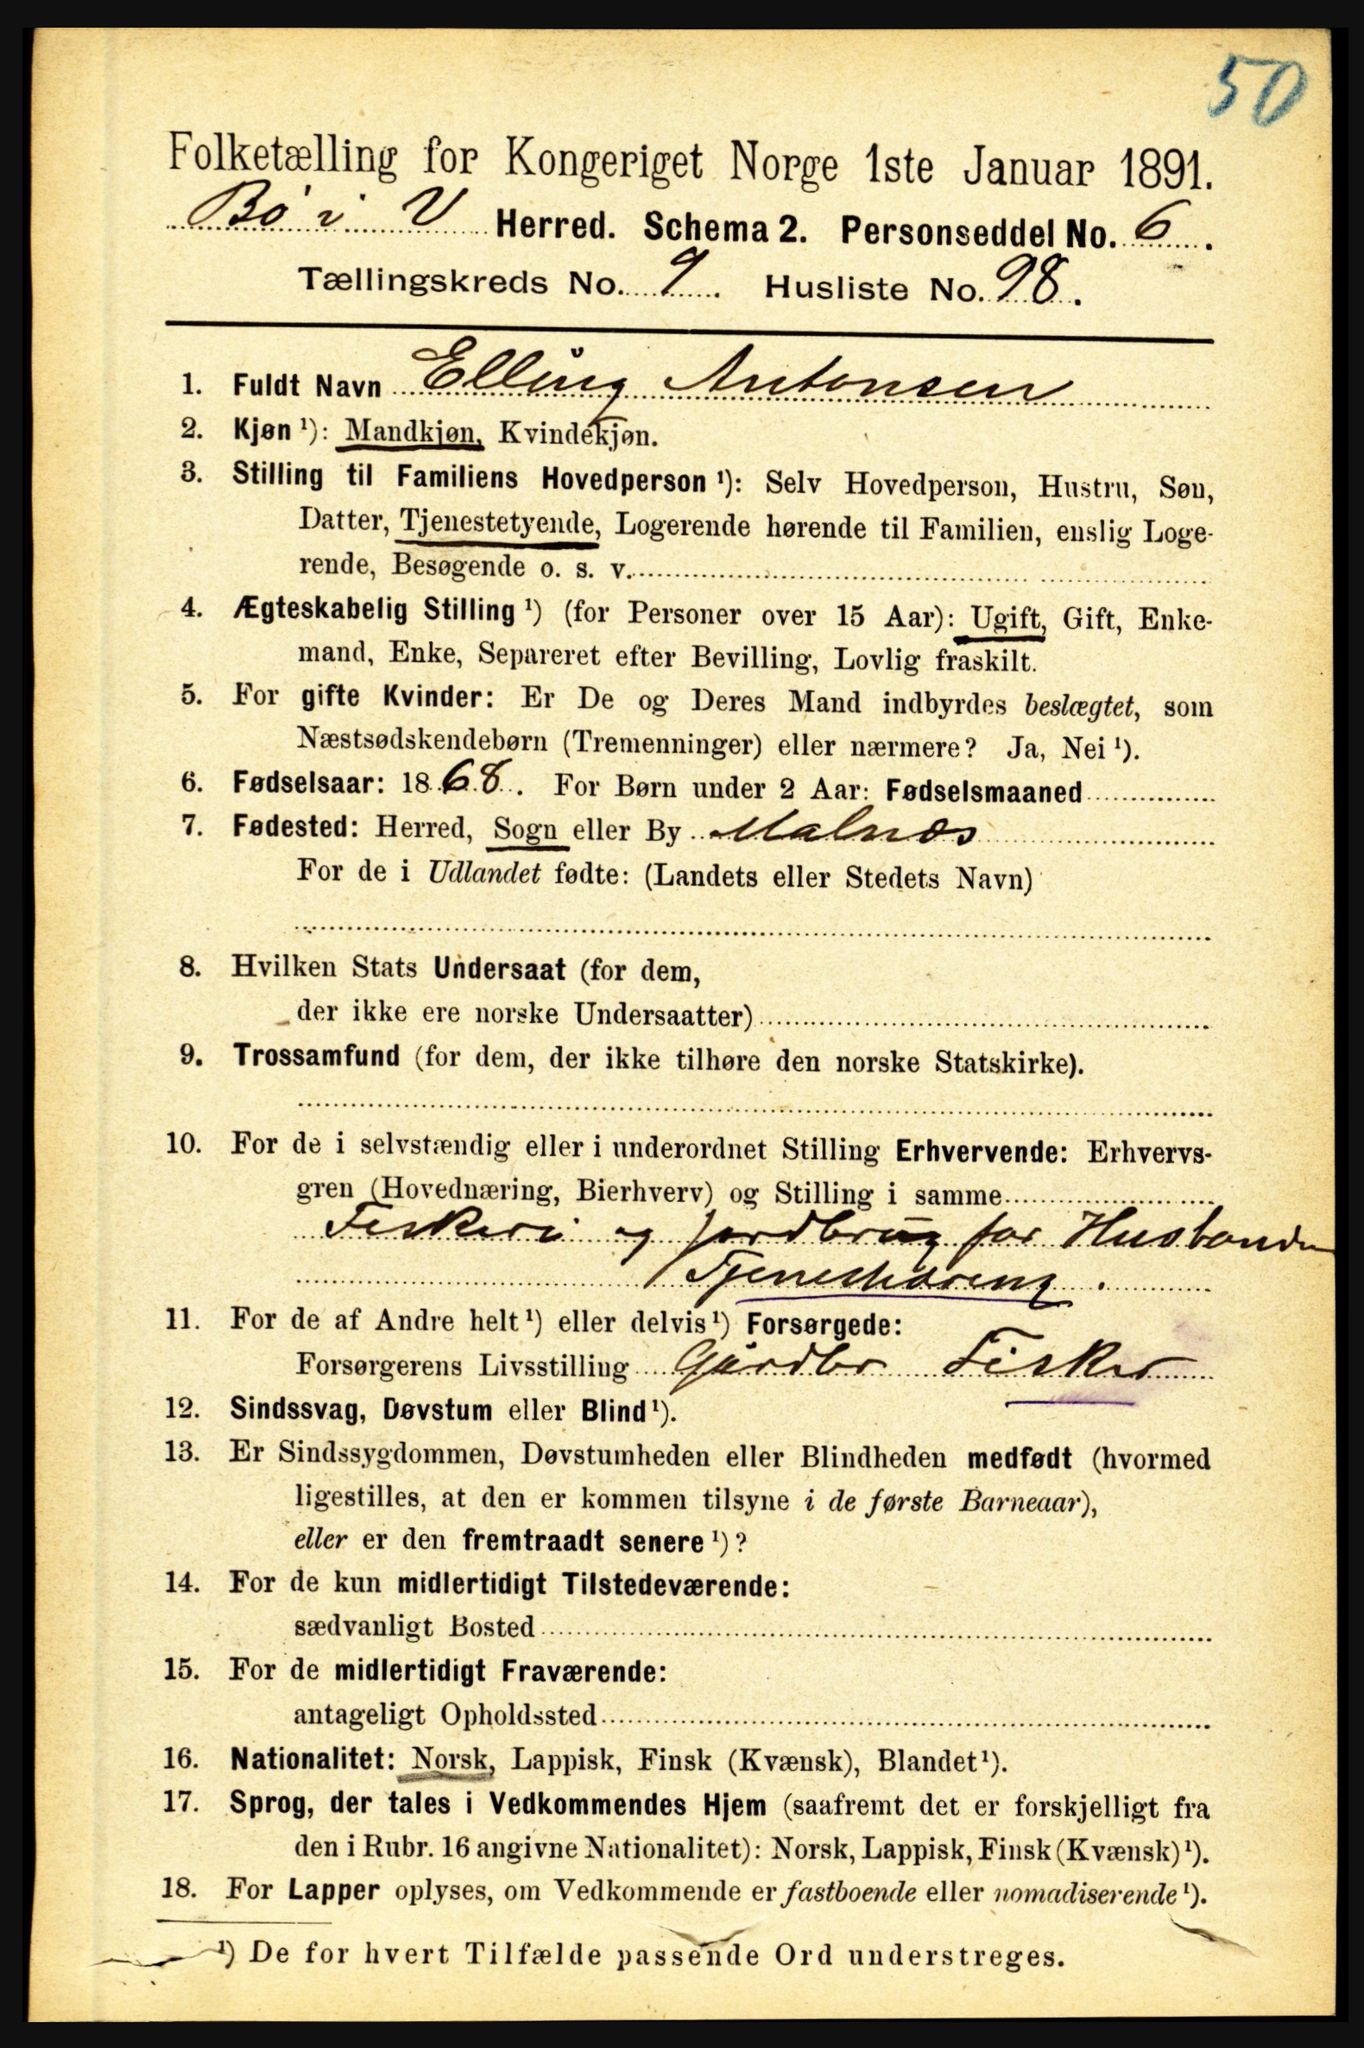 50
Folketælling for Kongeriget Norge 1ste Januar 1891.
Bø i V Herred. Schema 2. Personseddel No. 6.
Tællingskreds No. 9. Husliste No. 98.
1. Fuldt Navn Elling Antonsen
2. Kjøn ¹): Mandkjøn, Kvindekjøn.
3. Stilling til Familiens Hovedperson ¹): Selv Hovedperson, Hustru, Søn,
Datter, Tjenestetyende, Logerende hørende til Familien, enslig Loge-
rende, Besøgende o. s. v.
4. Ægteskabelig Stilling ¹) (for Personer over 15 Aar): Ugift, Gift, Enke-
mand, Enke, Separeret efter Bevilling, Lovlig fraskilt.
5. For gifte Kvinder: Er De og Deres Mand indbyrdes beslægtet, som
Næstsødskendebørn (Tremenninger) eller nærmere? Ja, Nei ¹).
6. Fødselsaar: 1868. For Børn under 2 Aar: Fødselsmaaned
7. Fødested: Herred, Sogn eller By Malnæs
For de i Udlandet fødte: (Landets eller Stedets Navn)
8. Hvilken Stats Undersaat (for dem,
der ikke ere norske Undersaatter)
9. Trossamfund (for dem, der ikke tilhøre den norske Statskirke).
10. For de i selvstændig eller i underordnet Stilling Erhvervende: Erhvervs-
gren (Hovednæring, Bierhverv) og Stilling i samme
Fiskeri og jordbrug for Husbonden
Tjenestedreng.
11. For de af Andre helt ¹) eller delvis ¹) Forsørgede:
Forsørgerens Livsstilling Gårdbr Fisker
12. Sindssvag, Døvstum eller Blind ¹).
13. Er Sindssygdommen, Døvstumheden eller Blindheden medfødt (hvormed
ligestilles, at den er kommen tilsyne i de første Barneaar),
eller er den fremtraadt senere ¹)?
14. For de kun midlertidigt Tilstedeværende:
sædvanligt Bosted
15. For de midlertidigt Fraværende:
antageligt Opholdssted
16. Nationalitet: Norsk, Lappisk, Finsk (Kvænsk), Blandet ¹).
17. Sprog, der tales i Vedkommendes Hjem (saafremt det er forskjelligt fra
den i Rubr. 16 angivne Nationalitet): Norsk, Lappisk, Finsk (Kvænsk) ¹).
18. For Lapper oplyses, om Vedkommende er fastboende eller nomadiserende ¹).
¹) De for hvert Tilfælde passende Ord understreges.